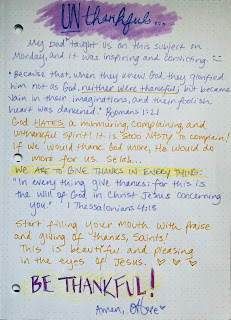 UNthankful...
My Dad taught us on this subject on
Monday, and it was inspiring and convicting. :)
"Because that, when they knew God, they glorified
him not as God, neither were thankful; but became
vain in their imaginations, and their foolish
heart was darkened." Romans 1:21
God HATES a murmuring, complaining, and
unthankful spirit! It is GOOD & NASTY to complain!
If we would thank God more, He would do
more for us. Selah...
WE ARE TO GIVE THANKS IN EVERYTHING:
"In every thing give thanks: for this is
the will of God in Christ Jesus concerning
you." 1 Thessalonians 4:18
Start filling your mouth with praise
and giving of thanks, Saints!
This is beautiful and pleasing
in the eyes of Jesus. ♡ ♡ ♡
BE THANKFUL!
Amen,